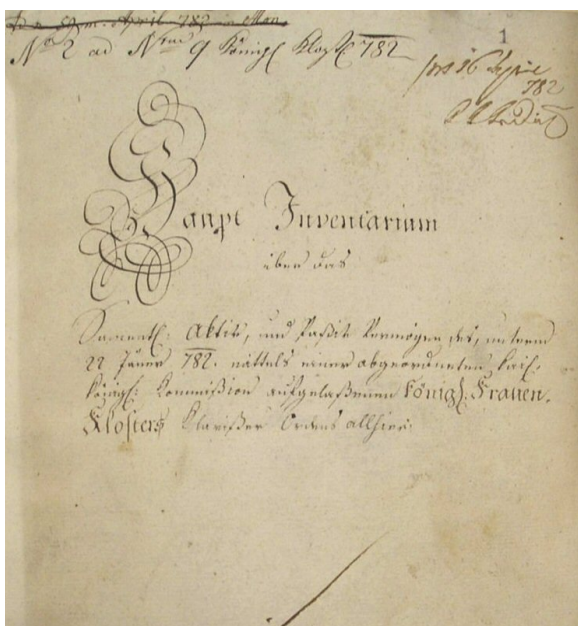 1
No 2 ad Nrum 9 Königl Klost 782
16 April
782
Haupt Inventarium
über das
Sammentl: Aktiv, und Passiv Vermögen des, unterm
22 Jäner 782. mittels einer abgeordneten kais:
Königl: Kommißion aufgelaßenen Königl. Frauen,
Klosters Klarißer Ordens allhier.